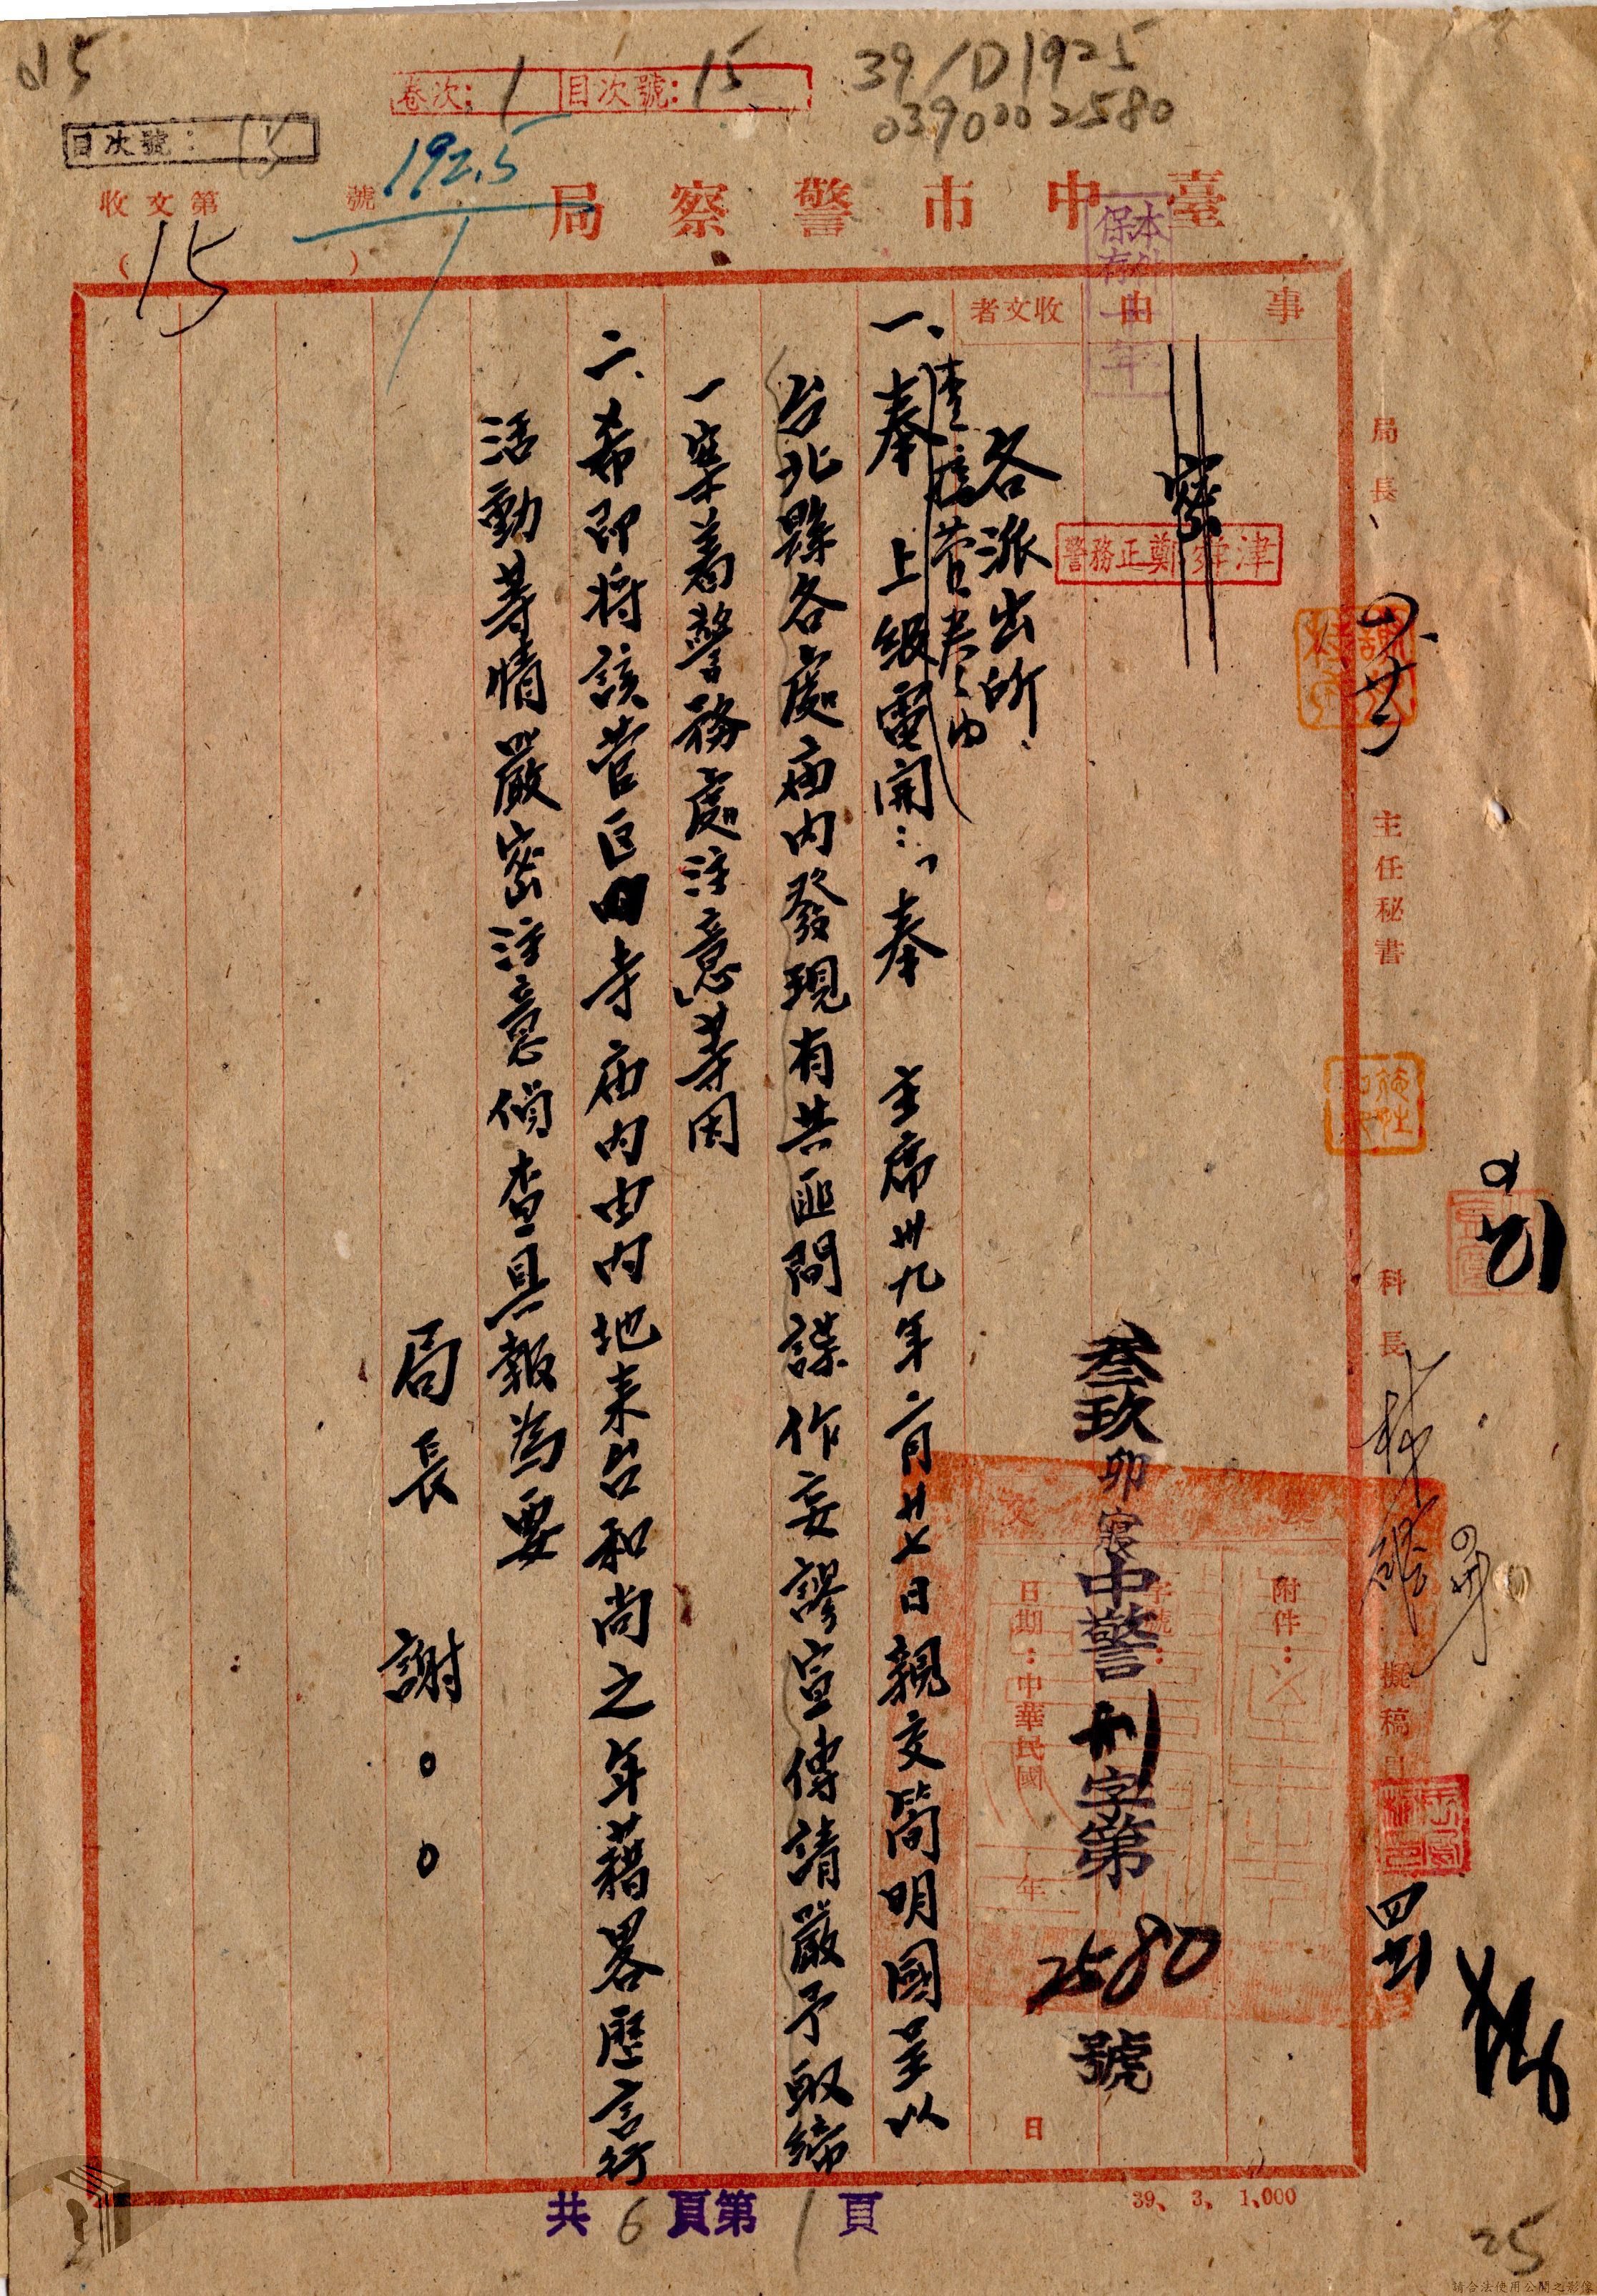 15
卷次：1 目次號：15
39/D1925
0390002580
目次號：15
192.5
1
收文第 號
(15)
臺中市警察局
本件保存一年
事由
收文者
密
警務正鄭舜津
各派出所
一、奉 上級電開：「奉 主席卅九年二月廿七日親交簡明國呈以
台北縣各處庙内發現有共匪間諜作妄謬宣傳請嚴予取締
一案着警務處注意」等因
二、希即將該管區内寺庙内由内地来台和尚之年藉畧歷言行
活動等情嚴密注意偵查具報為要
局長 謝○○
叁玖卯寢中警刑字第2580號
附件：
字號：
日期：中華民國 年 日
局長
主任秘書
科長
擬稿員
共6頁第1頁
39、3、1,000
25
請合法使用公開之影像